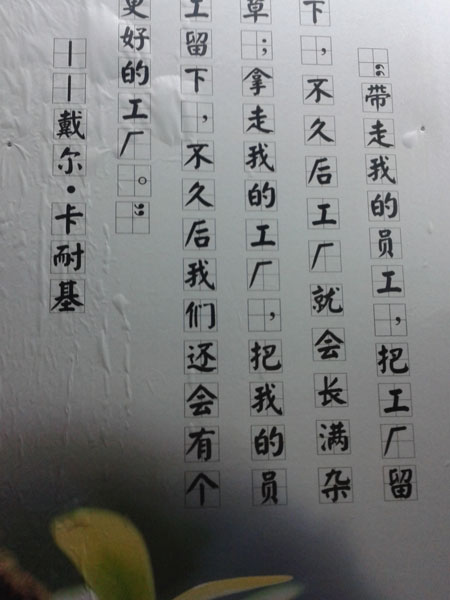 “带走我的员工，把工厂留
下，不久后工厂就会长满杂
草；拿走我的工厂，把我的员
工留下，不久后我们还会有个
更好的工厂。”
——戴尔·卡耐基